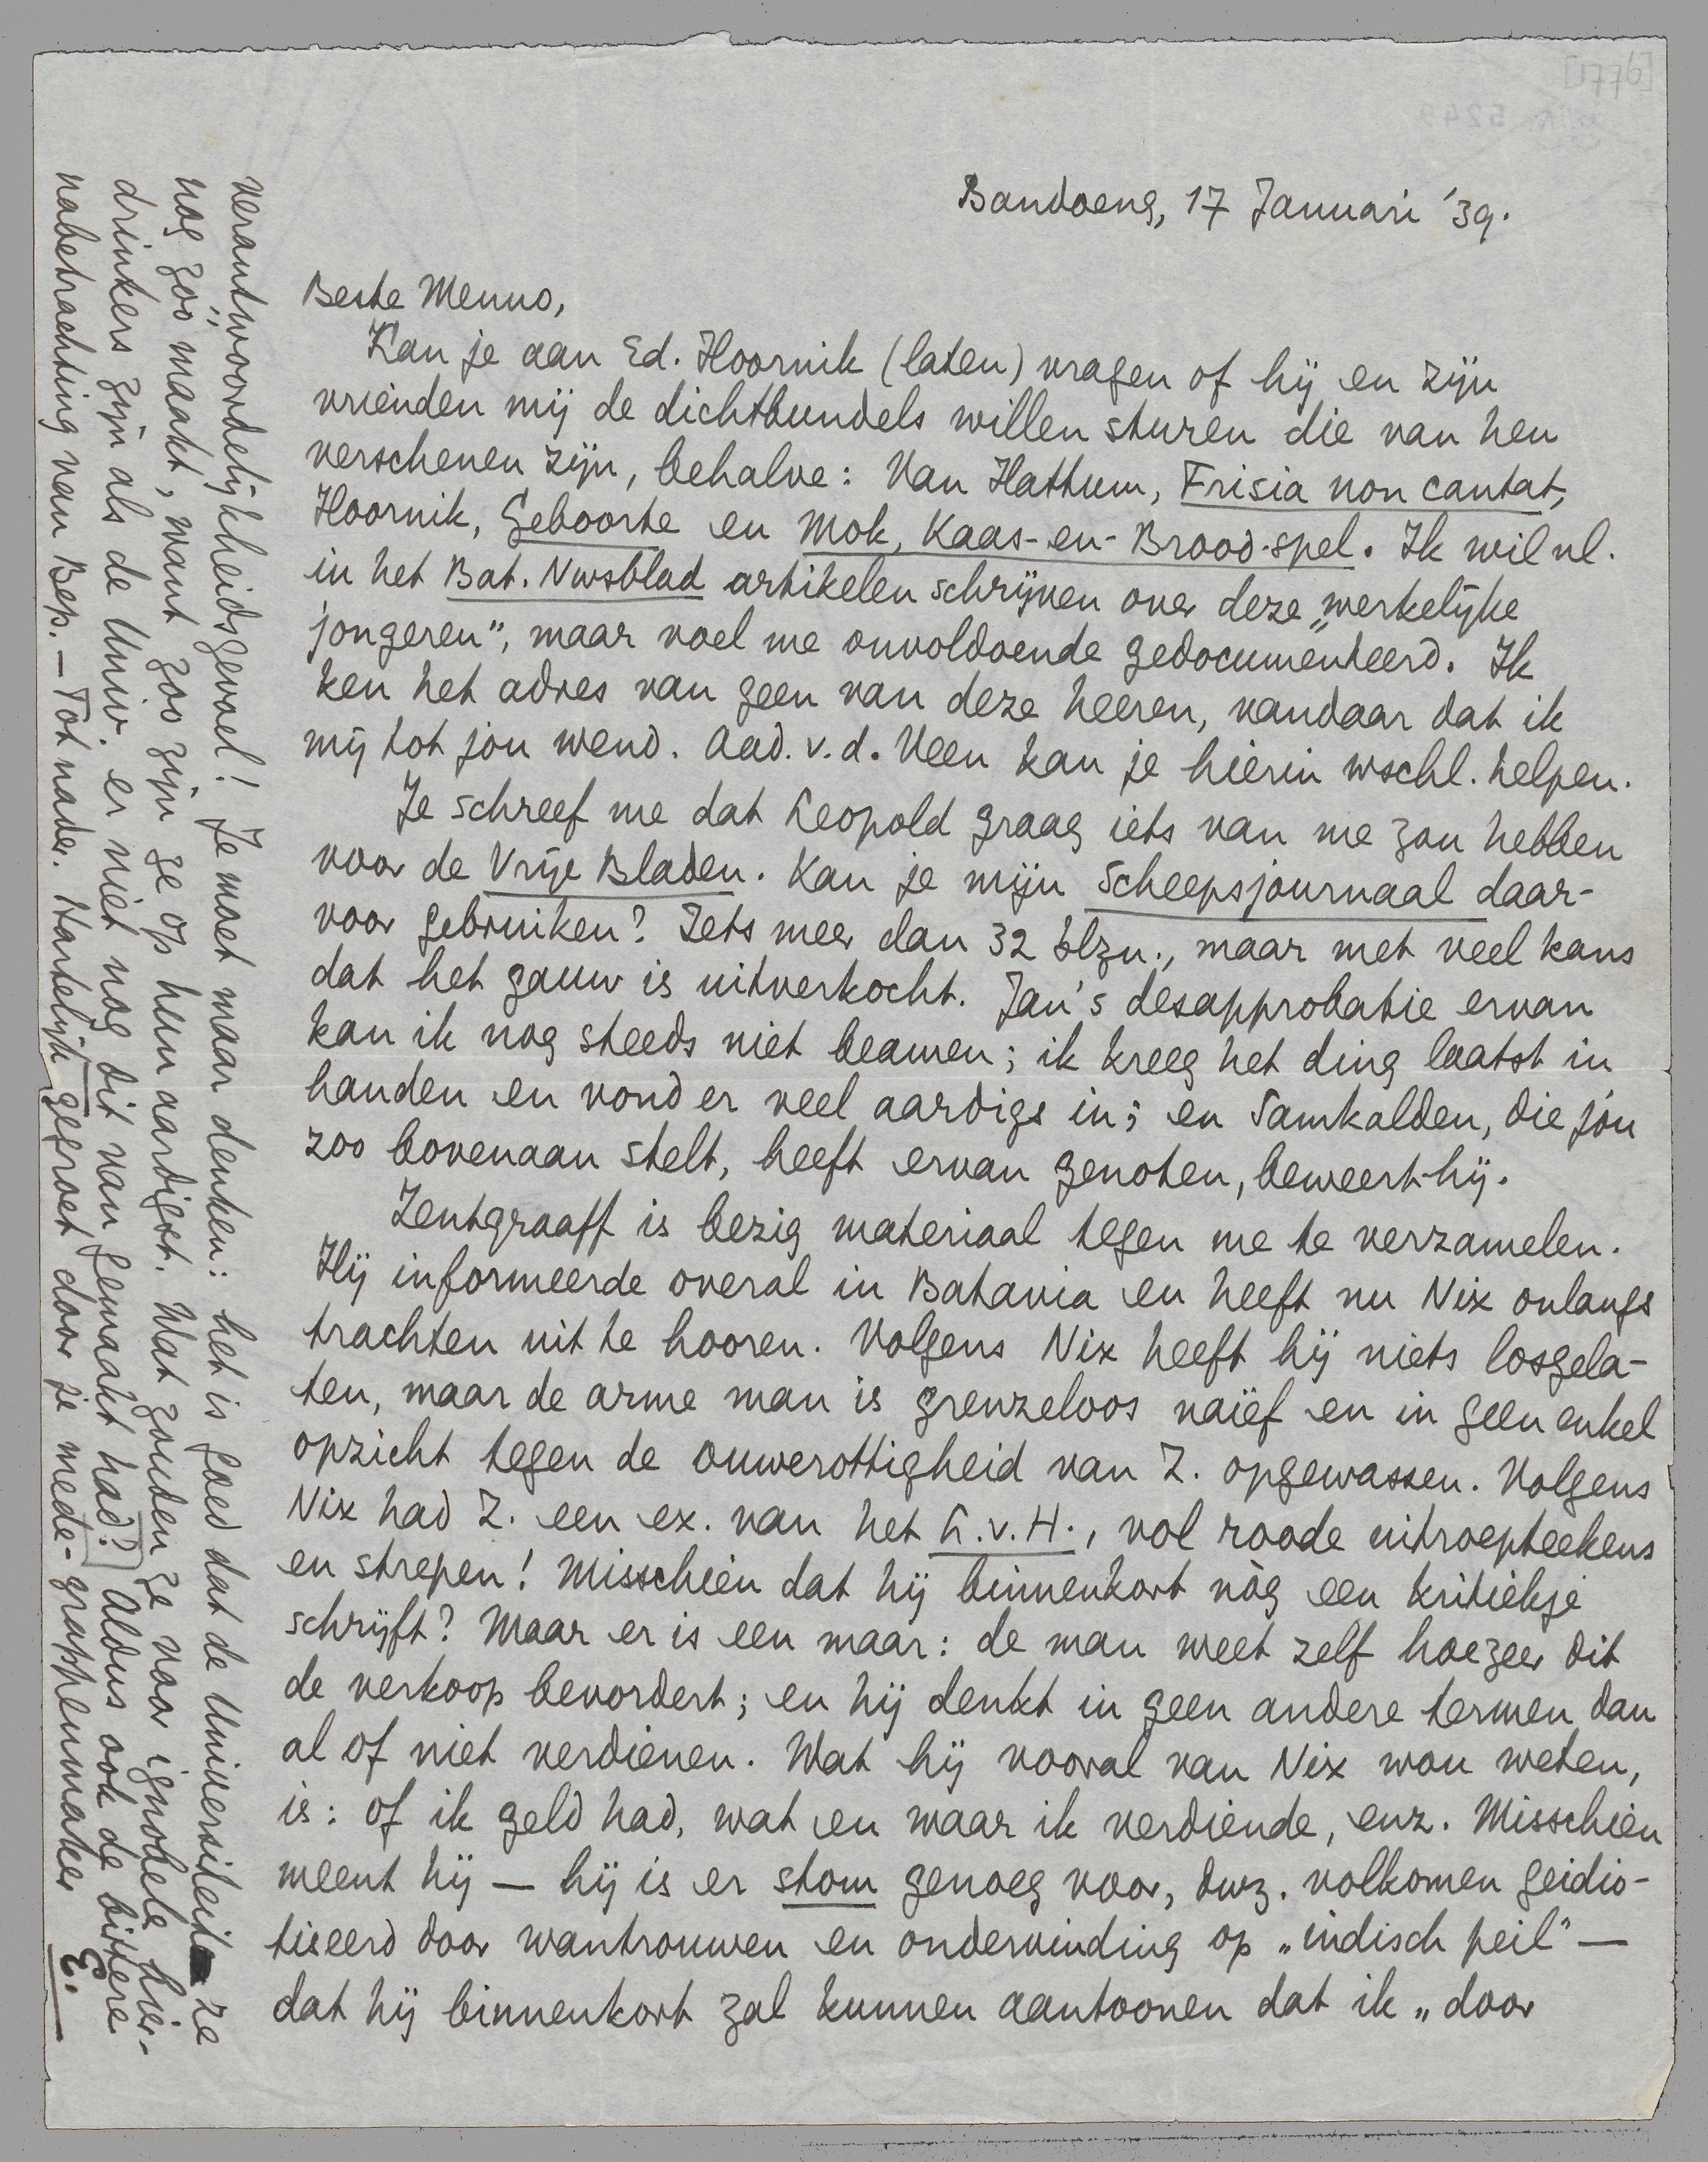 Bandoeng, 17 Januari '39.
Beste Menno,
Kan je aan Ed. Hoornik (laten) vragen of hij en zijn
vrienden mij de dichtbundels willen sturen die van hen
verschenen zijn, behalve: Van Hattum, Frisia non cantat,
Hoornik, Geboorte en Mok, Kaas-en-Brood-spel. Ik wil nl.
in het Bat. Nwsblad artikelen schrijven over deze „werkelijke
jongeren”, maar voel me onvoldoende gedocumenteerd. Ik
ken het adres van geen van deze heeren, vandaar dat ik
mij tot jou wend. Aad. v.d. Veen kan je hierin wschl. helpen.
Je schreef me dat Leopold graag iets van me zou hebben
voor de Vrije Bladen. Kan je mijn Scheepsjournaal daar-
voor gebruiken? Iets meer dan 32 blzn., maar met veel kans
dat het gauw is uitverkocht. Jan's desapprobatie ervan
kan ik nog steeds niet beamen; ik kreeg het ding laatst in
handen en vond er veel aardigs in; en Samkalden, die jóu
zoo bovenaan stelt, heeft ervan genoten, beweert-hij.
Zentgraaff is bezig materiaal tegen me te verzamelen.
Hij informeerde overal in Batavia en heeft nu Nix onlangs
trachten uit te hooren. Volgens Nix heeft hij niets losgela-
ten, maar de arme man is grenzeloos naïef en in geen enkel
opzicht tegen de ouwerottigheid van Z. opgewassen. Volgens
Nix had Z. een ex. van het L.v.H., vol roode uitroepteekens
en strepen! Misschien dat hij binnenkort nòg een kritiekje
schrijft? Maar er is een maar: de man weet zelf hoezeer dit
de verkoop bevordert; en hij denkt in geen andere termen dan
al of niet verdienen. Wat hij vooral van Nix wou weten,
is: of ik geld had, wat en waar ik verdiende, enz. Misschien
meent hij — hij is er stom genoeg voor, dwz. volkomen geidio-
tiseerd door wantrouwen en ondervinding op „indisch peil” —
dat hij binnenkort zal kunnen aantoonen dat ik „door
verantwoordelijkheidsgevoel! Je moet maar denken: het is goed dat de Universiteit ze
nog „zoo” maakt, want zoo zijn ze op hun aardigst. Wat zouden ze voor ignobele hier-
drinkers zijn als de Univ. er niet nog dit van gemaakt had?) Aldus ook de bittere
nabetrachting van Bep. — Tot nader. Hartelijk gegroet door je mede-grappenmaker E.